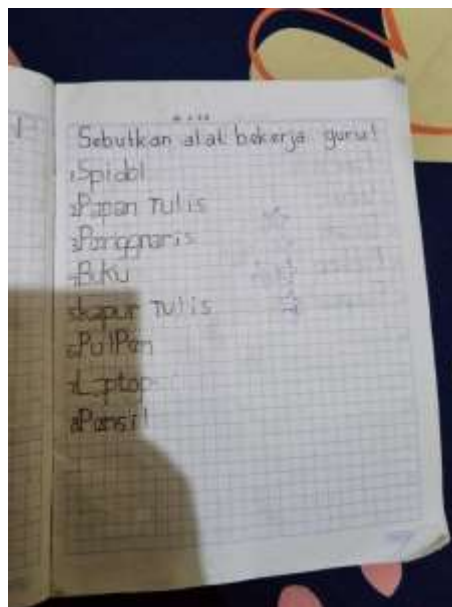 Sebutkan alat bekerja guru!
1 Spidol
2 Papan Tulis
3 Panggnaris
4 Buku
5 kapur Tulis
6 PulPen
7 Laptop
8 Pensil